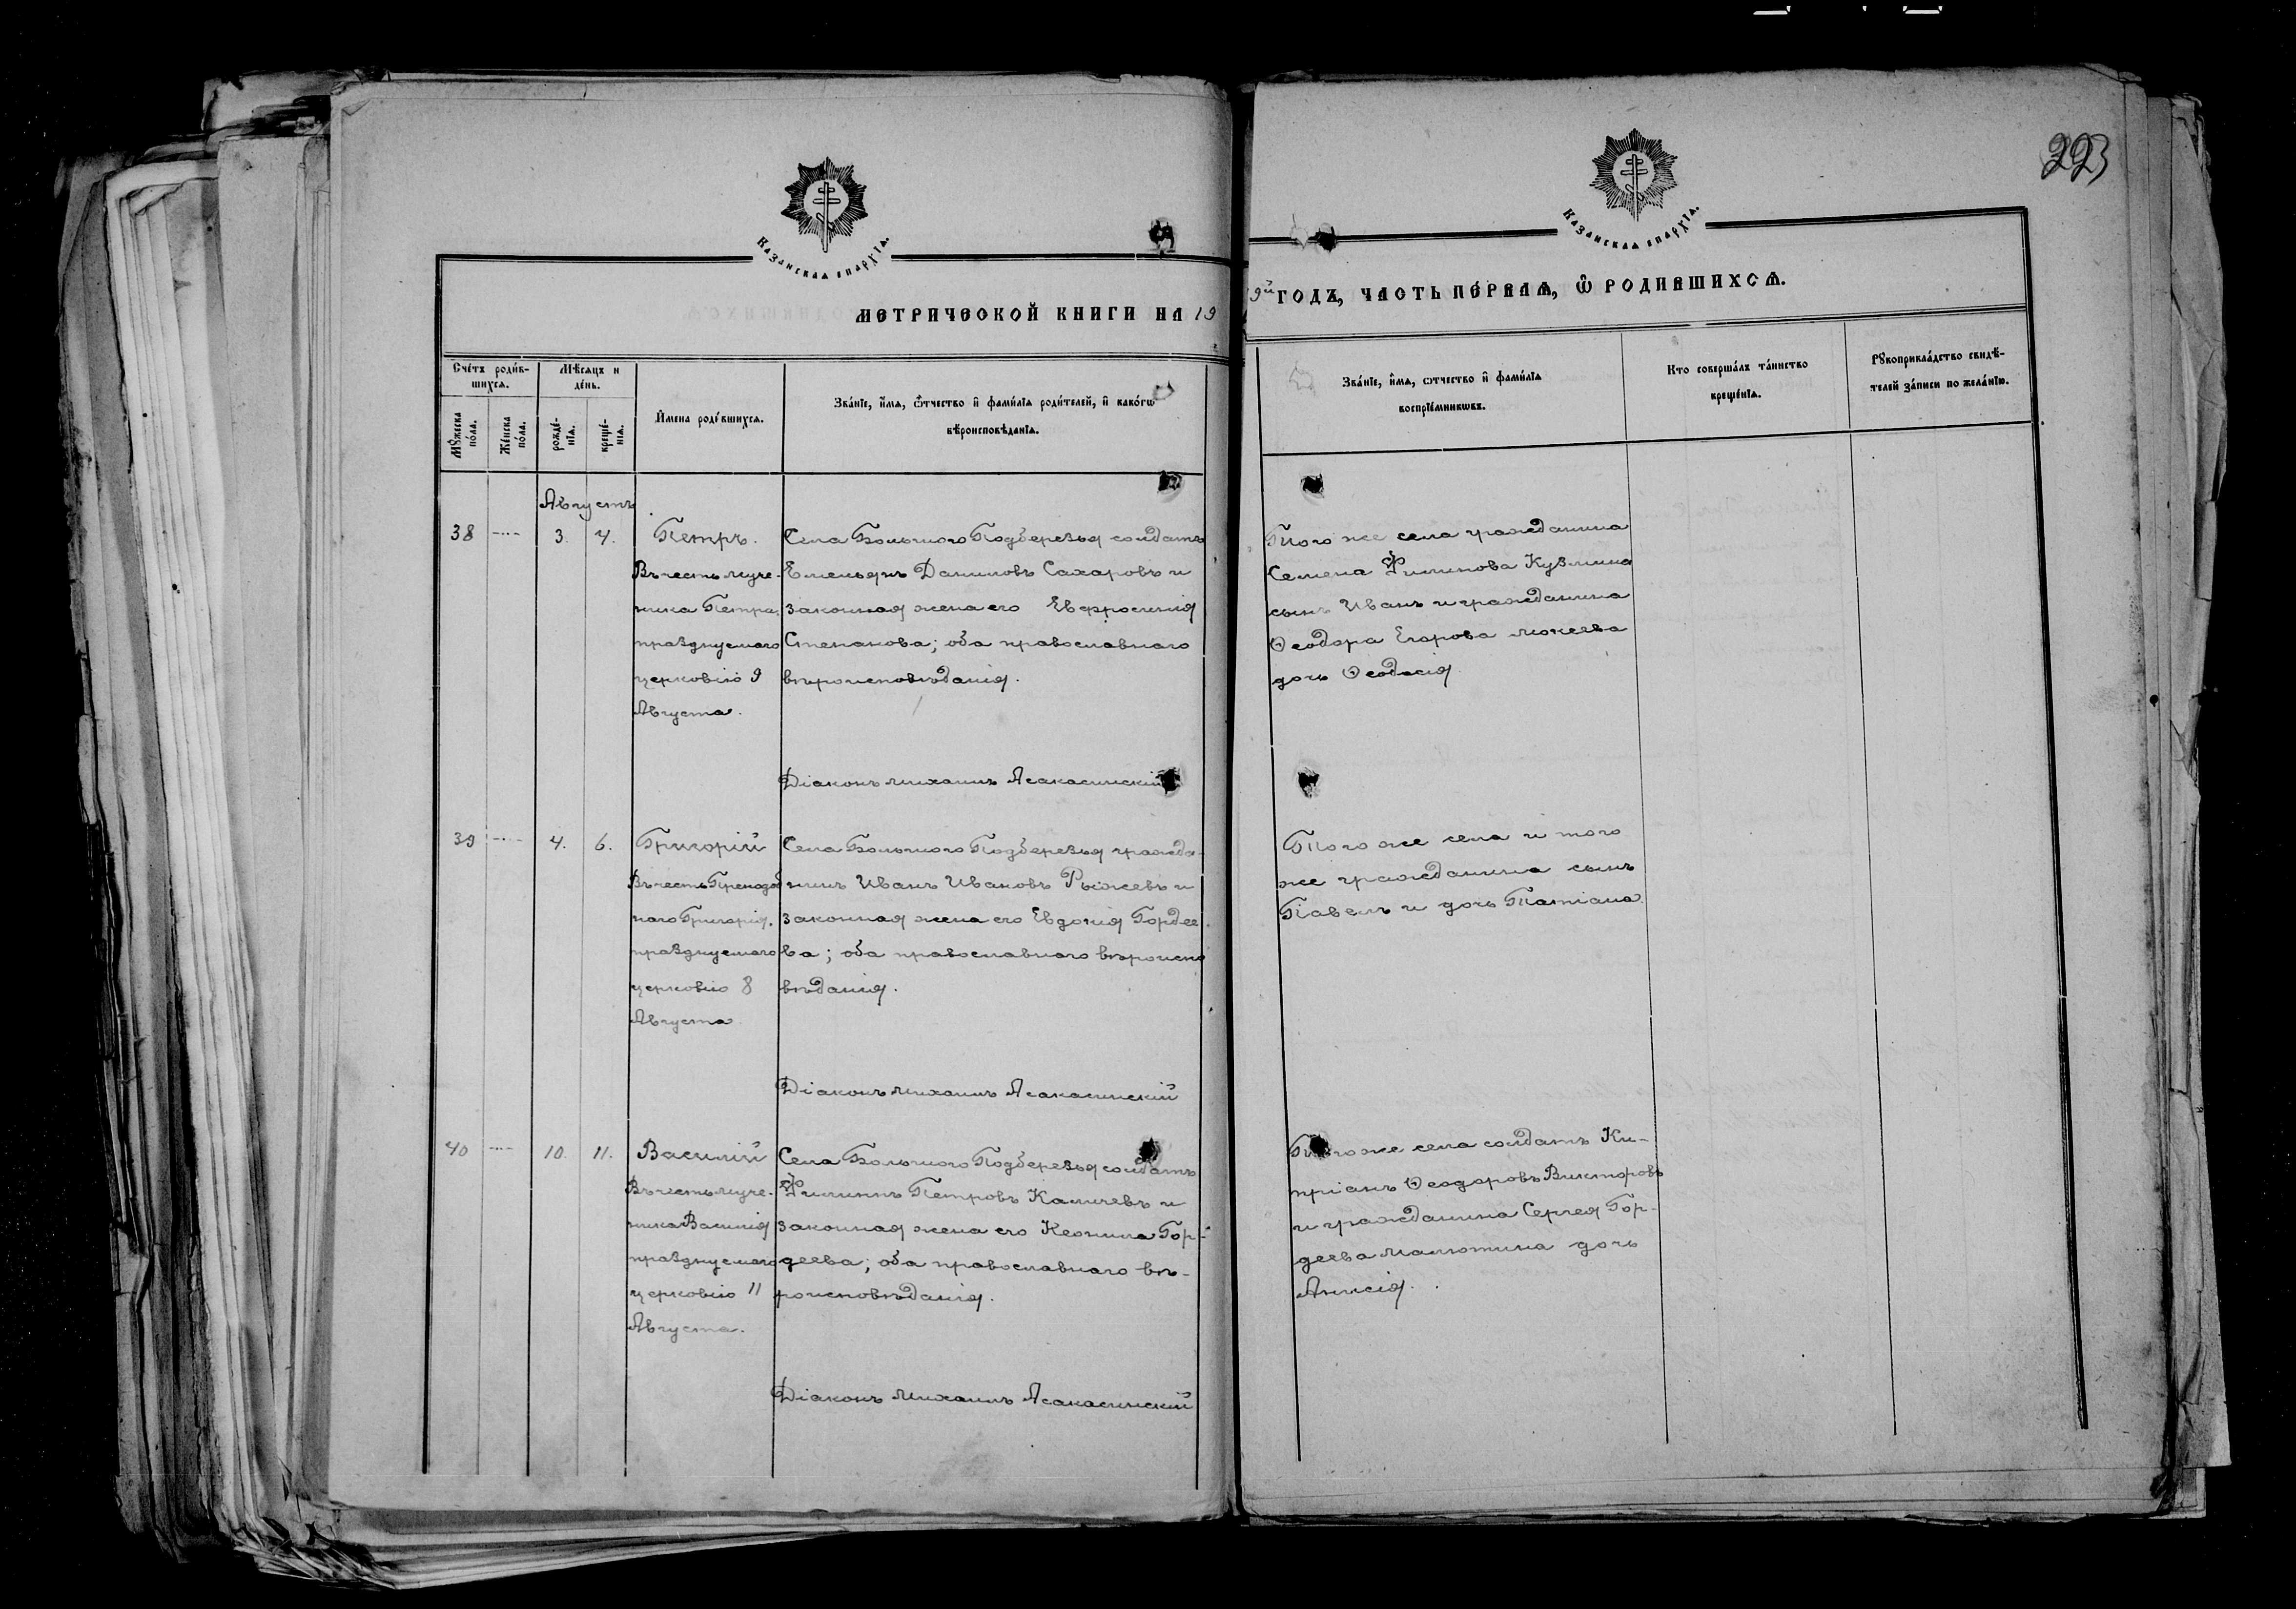 223
Казанская епархія.
Казанская епархія.
МЕТРИЧЕСКОЙ КНИГИ НА 19
9й ГОДЪ, ЧАСТЬ ПЕ́РВАѦ, Ѡ҆ РОДИВШИХСѦ.
Сче́тъ роди́в-
шихсѧ.
Мꙋ́жеска
по́ла.
Же́нска
по́ла.
Мѣ́сѧцъ и
де́нь.
рожде́-
нїѧ.
креще́-
нїѧ.
И҆мена роди́вшихсѧ.
Зва́нїе, и҆́мѧ, ѻ҆́тчество и҆ фами́лїѧ роди́телей, и҆ како́гѡ
вѣроисповѣ́данїѧ.
Зва́нїе, и҆́мѧ, ѻтчество и҆ фами́лїѧ
воспрїе́мникѡвъ.
Кто соверша́лъ та́инство
креще́нїѧ.
Рꙋкоприкла́дство свидѣ́-
телей за́писи по жела́нїю.
Августъ
38 3. 4. Петръ.
Въ честь муче-
ника Петра,
празднуемаго
церковію 9
Августа.
Села Большого Подберезья солдатъ
Емельянъ Даниловъ Сахаровъ и
законная жена его Евфросинія
Степанова; оба православнаго
вѣроисповѣданія.
Діаконъ Михаилъ Асакасинскій
Того же села гражданина
Семена Филипова Кузмина
сынъ Иванъ и гражданина
Ѳеодора Егорова Мокеева
дочь Ѳеодосія
39 4. 6. Григорій
Въ честь Преподоб
наго Григорія.
празднуемаго
церковію 8
Августа
Села Большого Подберезья гражда-
нинъ Иванъ Ивановъ Рыжевъ и
законная жена его Евдокія Гордее
ва; оба православнаго вѣроиспо
вѣданія.
Діаконъ Михаилъ Асакасинскій
Того же села и того
же гражданина сынъ
Павелъ и дочь Татіана.
40 10. 11. Василій
Въ честь муче-
ника Василія
празднуемаго
церковію 11
Августа.
Села Большого Подберезья солдатъ
Филиппъ Петровъ Каличевъ и
законная жена его Неонила Гор-
деева; оба православнаго вѣ-
роисповѣданія.
Діаконъ Михаилъ Асакасинскій
Того же села солдатъ Ки-
пріанъ Ѳеодоровъ Викторовъ
и гражданина Сергея Гор-
деева Малютина дочь
Анисія.